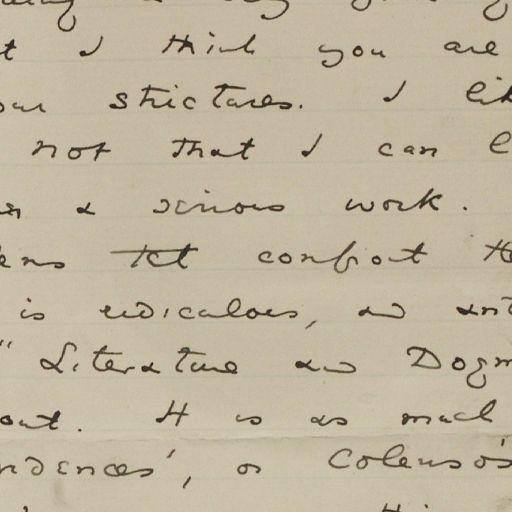 t I think you are
our strictures. I lik
not that I can l
in a serious work.
ens tct confront th
is ridiculous, and ant
" Literature and Dogm
out. It is as much
ndences', or Colenso's